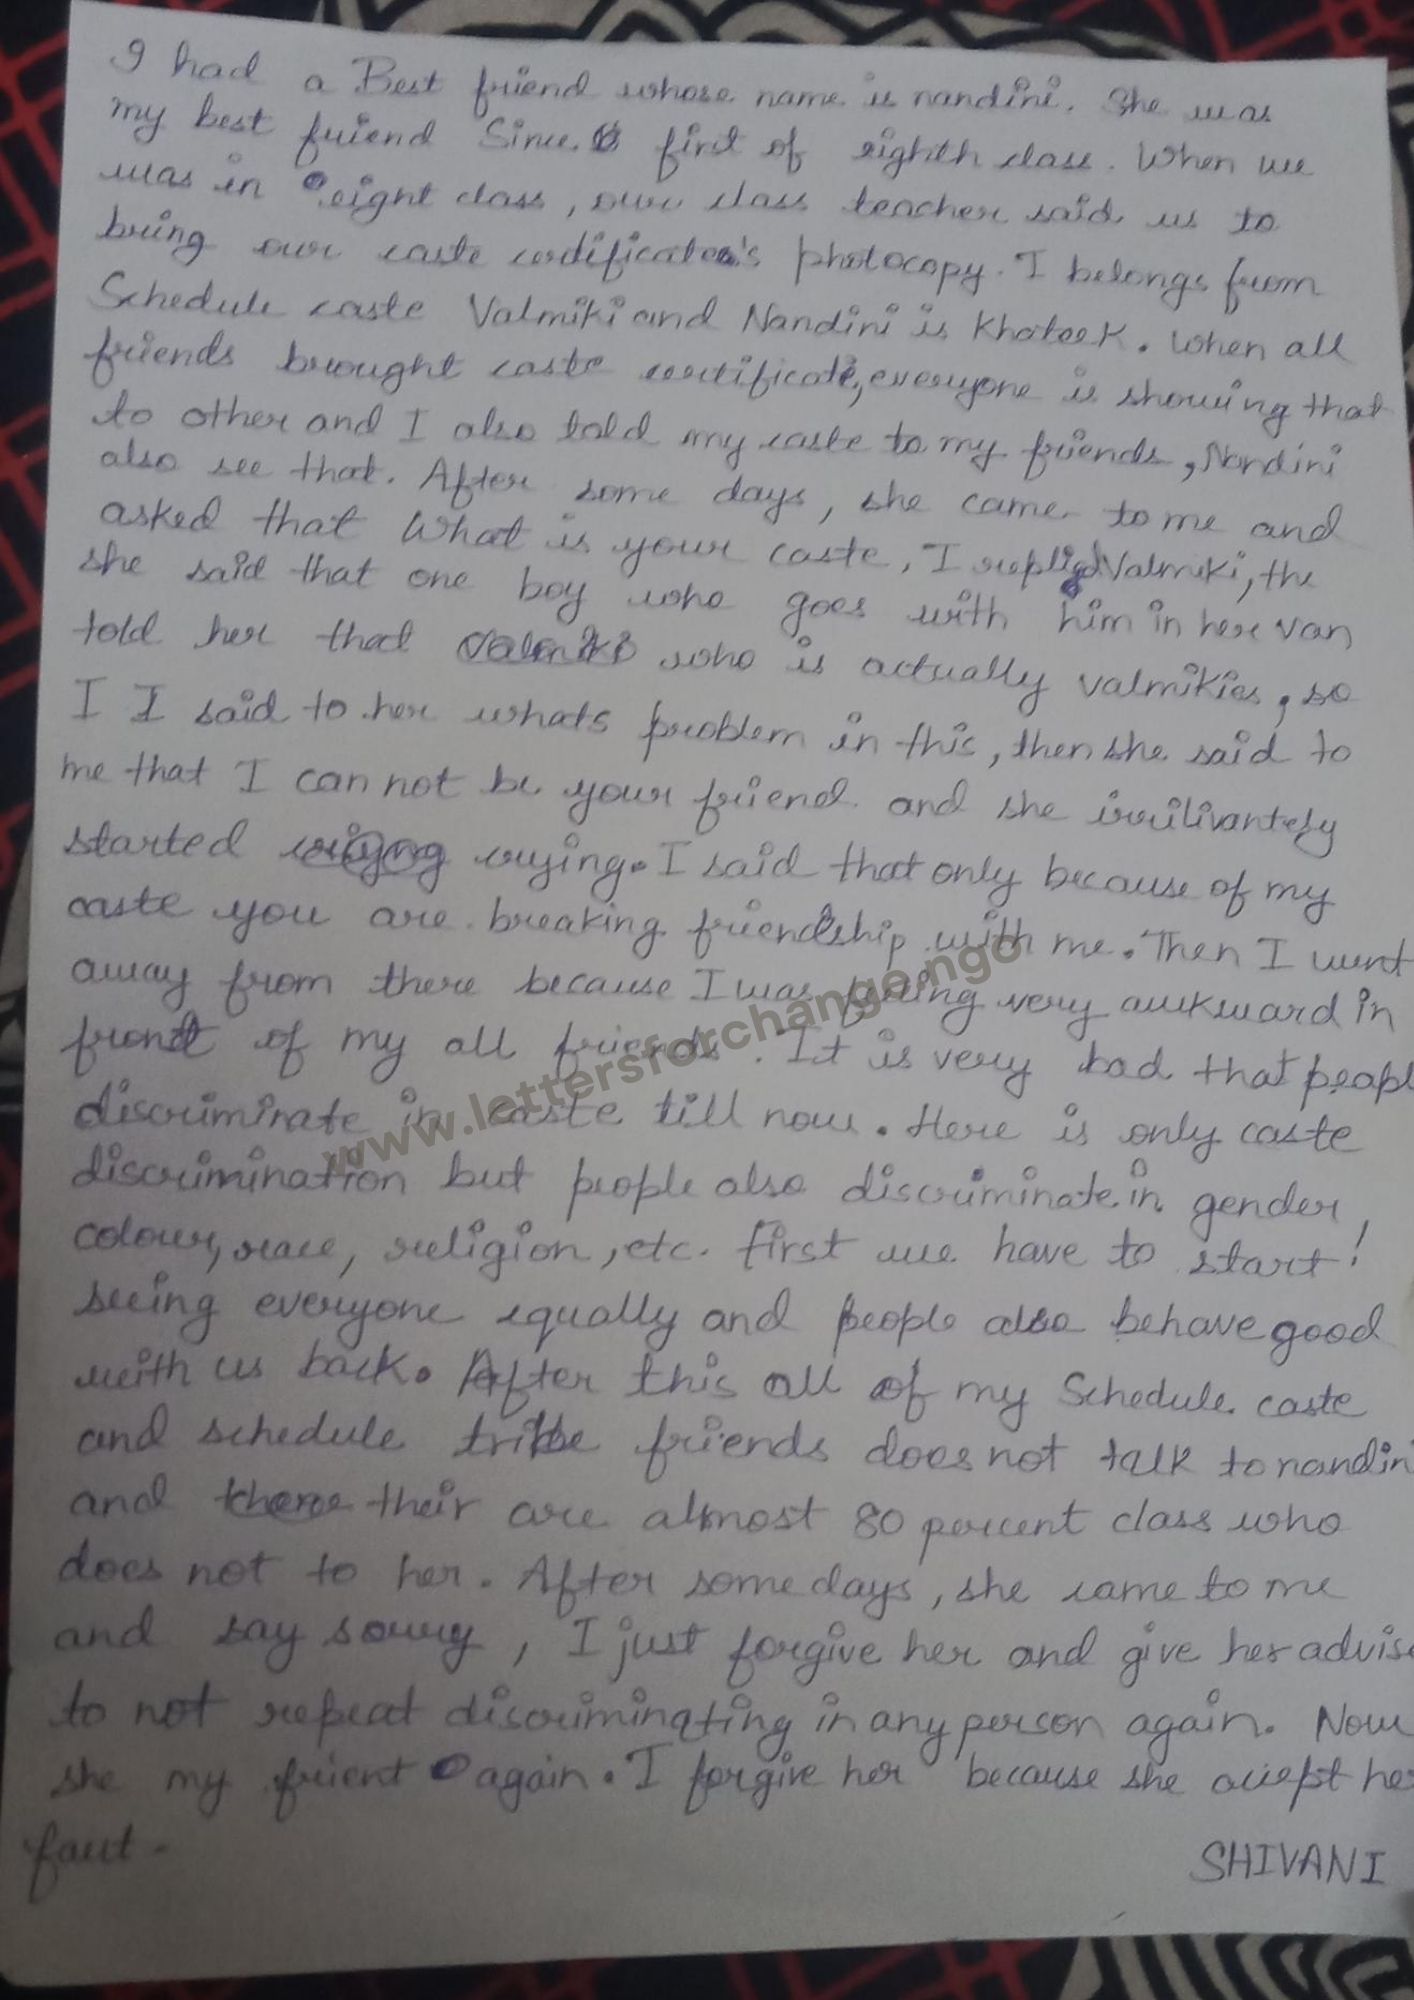 I had a Best friend whose name is nandini. She was
my best friend Since first of eighth class. When we
was in eight class, our class teacher said us to
bring our caste certificates's photocopy. I belongs from
Schedule caste Valmiki and Nandini is Khateek. When all
friends brought caste certificate, everyone is showing that
to other and I also told my caste to my friends, Nandini
also see that. After some days, she came to me and
asked that What is your caste, I replied Valmiki, the
she said that one boy who goes with him in her van
told her that Valmiki who is actually valmikies, so
I I said to her whats problem in this, then she said to
me that I can not be your friend and she irrilivantely
started crying. I said that only because of my
caste you are breaking friendship with me. Then I went
away from there because I was feeling very awkward in
front of my all friends. It is very bad that peopl
discriminate in caste till now. Here is only caste
discrimination but people also discriminate in gender,
colour, race, religion, etc. first we have to start
seeing everyone equally and people also behave good
with us back. After this all of my Schedule caste
and schedule tribe friends does not talk to nandin
and their are almost 80 percent class who
does not to her. After some days, she came to me
and say sorry, I just forgive her and give her advise
to not repeat discriminating in any person again. Now
she my frient again. I forgive her because she accept her
faut.
SHIVANI
www.lettersforchange.ngo